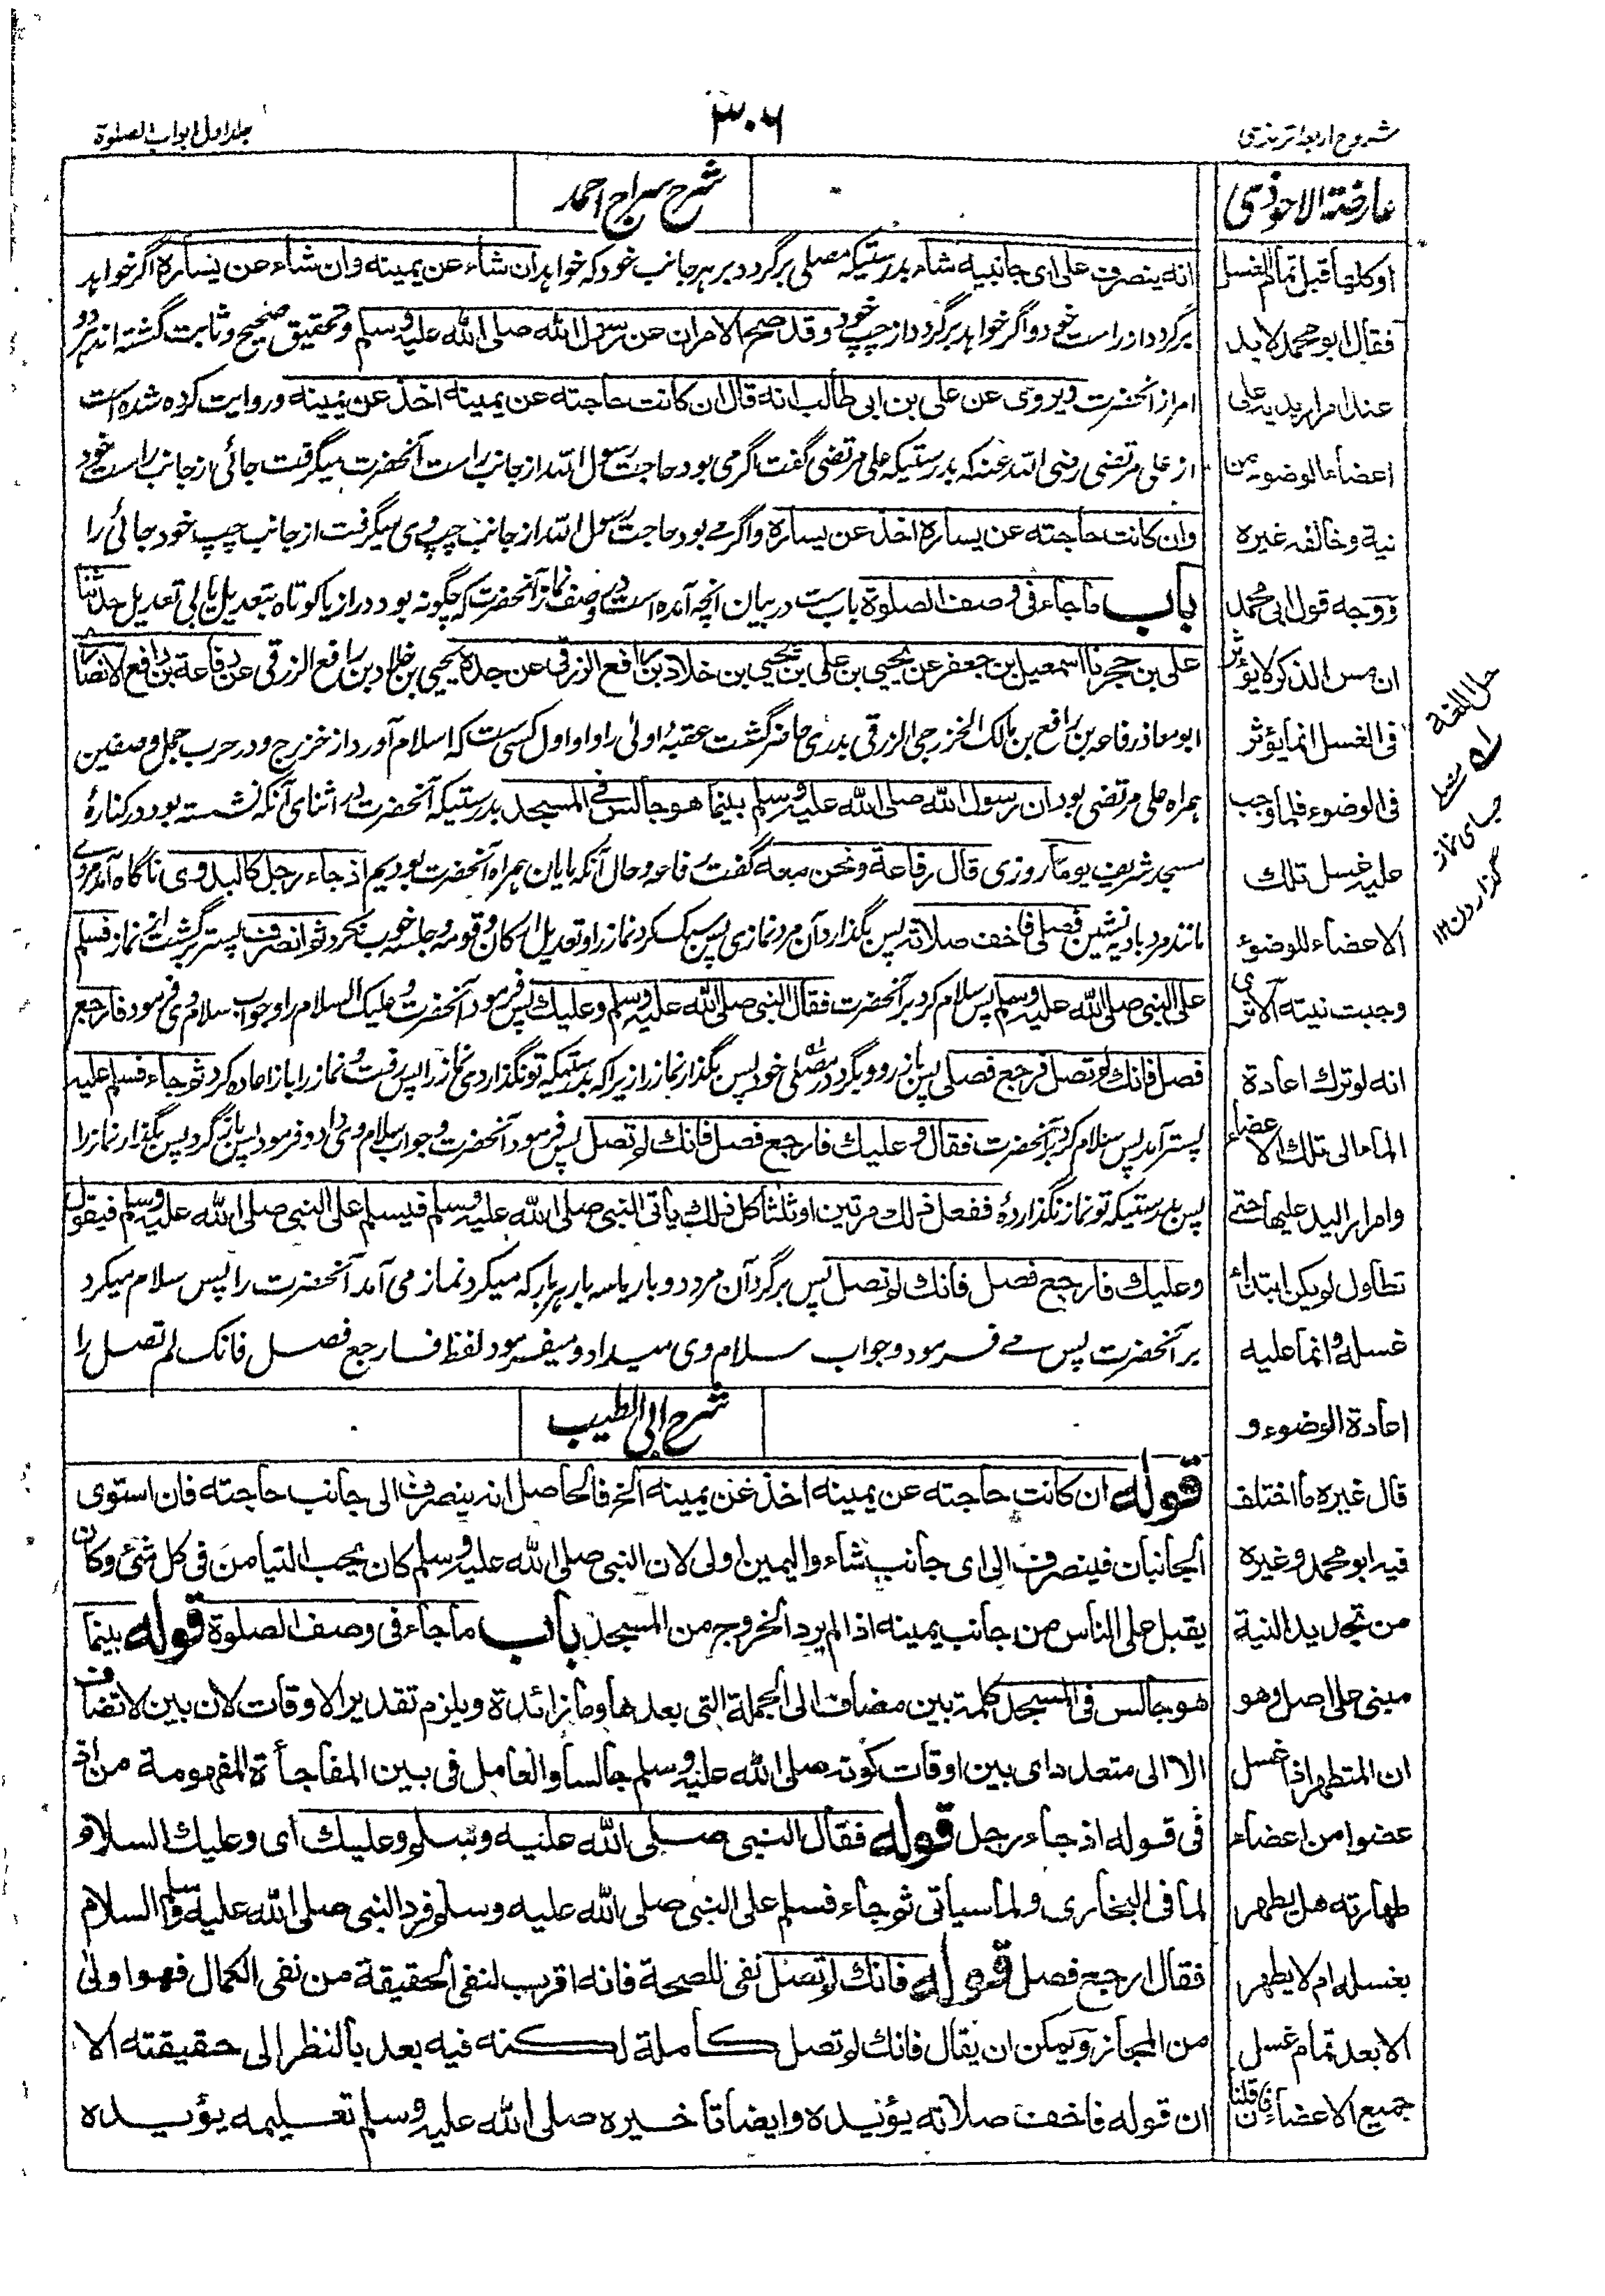 شروح اربعه ترمذی
۳۰۶
جلد اول ابواب الصلوة
عارضة الاحوذی
اوکلها قبل تمام الغسل
فقال ابو محمد لابد
عند امرار یدیه علی
اعضاء الوضوء من
نیة وخالفه غیره
ووجه قول ابی محمد
ان مس الذکر لا یؤثر
فی الغسل انما یؤثر
فی الوضوء فلما وجب
علیه غسل تلک
الاعضاء للوضوء
وجبت نیته الا تری
انه لو ترک اعادة
الماء الی تلک الاعضاء
وامرار الید علیها حتی
تطاول لم یکن ابتداء
غسله وانما علیه
اعادة الوضوء و
قال غیره ما اختلف
فیه ابو محمد وغیره
من تجدید النیة
مبنی علی اصل وهو
ان المتطهر اذا غسل
عضوا من اعضاء
طهارته هل یطهر
بغسله ام لا یطهر
الا بعد تمام غسل
جمیع الاعضاء فان قلنا
شرح سراج احمد
انه ینصرف علی ای جانبیه شاء بدرستیکه مصلی برگردد بر هر جانب خود که خواهد ان شاء عن یمینه وان شاء عن یساره اگر خواهد
برگردد از راست خود و اگر خواهد برگردد از چپ خود وقد صح الامران عن رسول الله صلی الله علیه وسلم و تحقیق صحیح و ثابت گشته اند هر دو
امر از آنحضرت ویروی عن علی بن ابی طالب انه قال ان کانت حاجته عن یمینه اخذ عن یمینه و روایت کرده شده است
از علی مرتضی رضی الله عنه که بدرستیکه علی مرتضی گفت اگر می بود حاجت رسول الله از جانب راست آنحضرت میگرفت جائی از جانب راست خود
وان کانت حاجته عن یساره اخذ عن یساره و اگر می بود حاجت رسول الله از جانب چپ وی میگرفت از جانب چپ خود جائی را
باب ما جاء فی وصف الصلوة باب ست در بیان آنچه آمده است در وصف نماز آنحضرت که چگونه بود دراز یا کوتاه بتعدیل یا بی تعدیل حدثنا
علی بن حجر نا اسمعیل بن جعفر عن یحیی بن علی بن یحیی بن خلاد بن رافع الزرقی عن جده یحیی بن خلاد بن رافع الزرقی عن رفاعة بن رافع الانصاری
ابو معاذ رفاعه بن رافع بن مالک الخزرجی الزرقی بدری حاضر گشت عقبۀ اولی را و او اول کسی ست که اسلام آورد از خزرج و در حرب جمل و صفین
همراه علی مرتضی بود ان رسول الله صلی الله علیه وسلم بینما هو جالس فی المسجد بدرستیکه آنحضرت در اثنای آنکه نشسته بود در کنارۀ
مسجد شریف یوما روزی قال رفاعة ونحن معه گفت رفاعه و حال آنکه مایان همراه آنحضرت بودیم اذ جاء رجل کالبدوی ناگاه آمد مردی
مانند مرد بادیه نشین فصلی فاخف صلاته پس بگذارد آن مرد نمازی پس سبک کرد نماز را و تعدیل ارکان و قومه و جلسه خوب نکرد ثم انصرف پستر برگشت از نماز فسلم
علی النبی صلی الله علیه وسلم پس سلام کرد بر آنحضرت فقال النبی صلی الله علیه وسلم وعلیک پس فرمود آنحضرت و علیک السلام را و جواب سلام وی فرمود فارجع
فصل فانک لم تصل فرجع فصلی پس باز رو و بگرد در مصلی خود پس بگذار نماز را زیرا که بدرستیکه تو نگذاردی نماز را پس رفت و نماز را باز اعاده کرد ثم جاء فسلم علیه
پستر آمد پس سلام کرد بر آنحضرت فقال وعلیک فارجع فصل فانک لم تصل پس فرمود آنحضرت و جواب سلام وی داد و فرمود پس بازگرد پس بگذار نماز را
پس بدرستیکه تو نماز نگذاردۀ ففعل ذلک مرتین او ثلثا کل ذلک یأتی النبی صلی الله علیه وسلم فیسلم علی النبی صلی الله علیه وسلم فیقول
وعلیک فارجع فصل فانک لم تصل پس برگرد آن مرد دو بار یا سه بار هر بار که میکرد نماز می آمد آنحضرت را پس سلام میکرد
بر آنحضرت پس می فرمود و جواب سلام وی میداد و میفرمود لفظ فارجع فصل فانک لم تصل را
شرح ابی الطیب
قوله ان کانت حاجته عن یمینه اخذ عن یمینه الخ فالحاصل انه ینصرف الی جانب حاجته فان استوی
الجانبان فینصرف الی ای جانب شاء والیمین اولی لان النبی صلی الله علیه وسلم کان یحب التیامن فی کل شئ وکان
یقبل علی الناس من جانب یمینه اذا لم یرد الخروج من المسجد باب ما جاء فی وصف الصلوة قوله بینما
هو جالس فی المسجد کلمة بین مضاف الی الجملة التی بعدها وما زائدة ویلزم تقدیر الاوقات لان بین لا تضاف
الا الی متعدد ای بین اوقات کونه صلی الله علیه وسلم جالسا والعامل فی بین المفاجأة المفهومة من اذ
فی قوله اذ جاء رجل قوله فقال النبی صلی الله علیه وسلم وعلیک ای وعلیک السلام
لما فی البخاری ولما سیأتی ثم جاء فسلم علی النبی صلی الله علیه وسلم فرد النبی صلی الله علیه وسلم السلام
فقال ارجع فصل قوله فانک لم تصل نفی للصحة فانه اقرب لنفی الحقیقة من نفی الکمال فهو اولی
من المجاز ویمکن ان یقال فانک لم تصل کاملة لکنه فیه بعد بالنظر الی حقیقته الا
ان قوله فاخف صلاته یؤیده وایضا تاخیره صلی الله علیه وسلم تعلیمه یؤیده
حل اللغة
جای نماز
گذاردن ۱۲